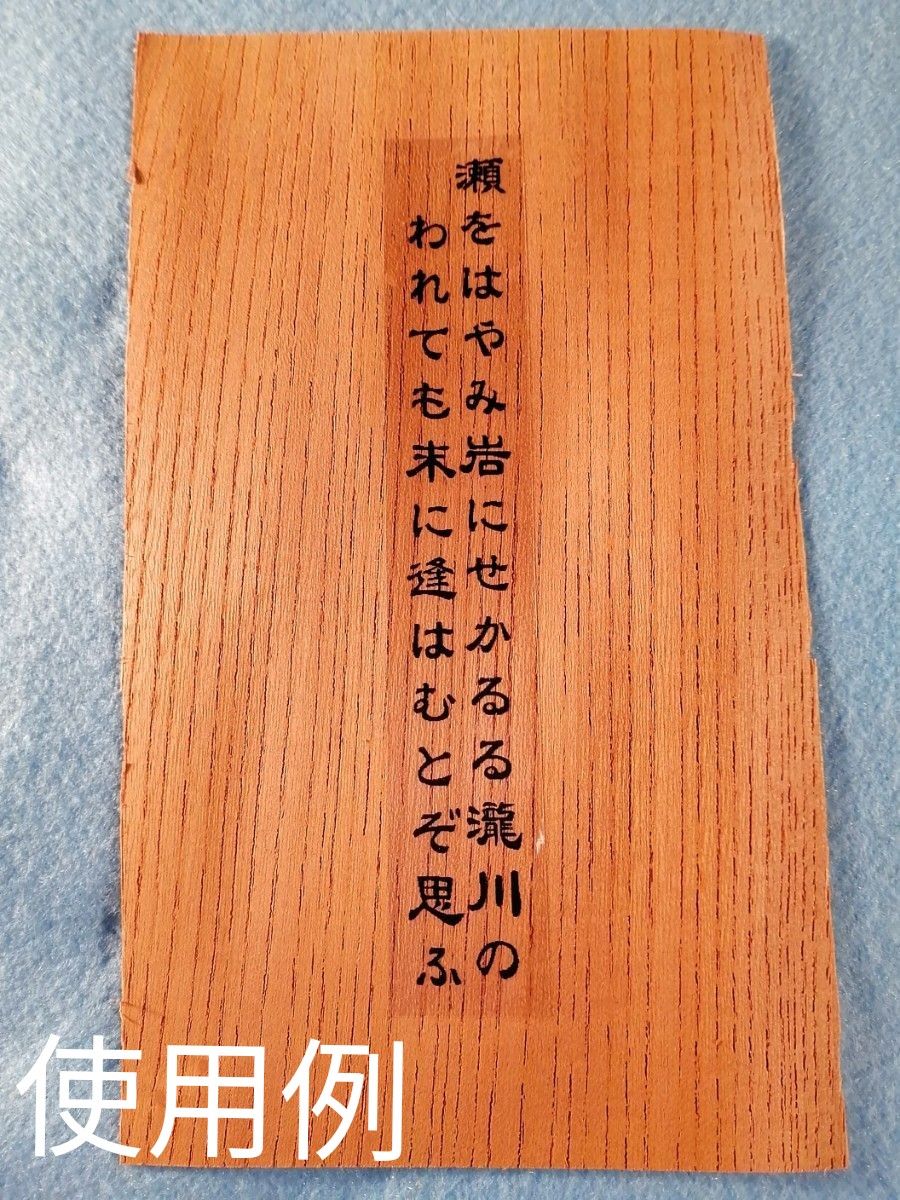 瀬をはやみ岩にせかるる瀧川の
われても末に逢はむとぞ思ふ
使用例